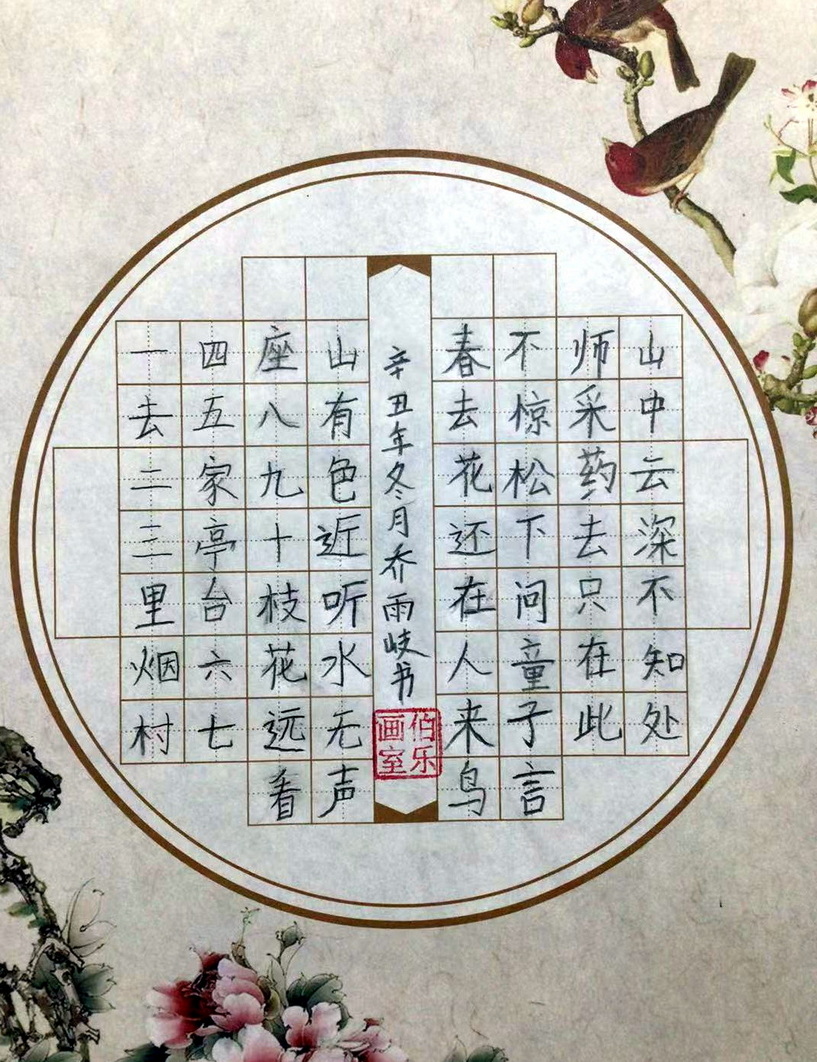 一去二三里烟村
四五家亭台六七
座八九十枝花远看
山有色近听水无声
春去花还在人来鸟
不惊松下问童子言
师采药去只在此
山中云深不知处
辛丑年冬月乔雨岐书
伯乐画室